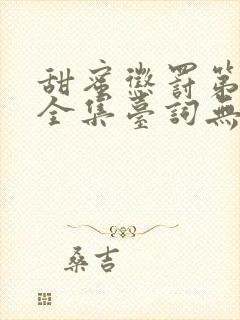 甜蜜懲罰第
全集臺詞無
桑吉